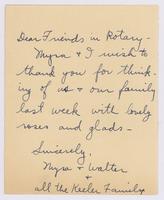 Dear Friends in Rotary -
Myra & I wish to
thank you for think-
ing of us & our family
last week with lovely
roses and glads -
Sincerely,
Myra & Walter
&
all the Keeler Family